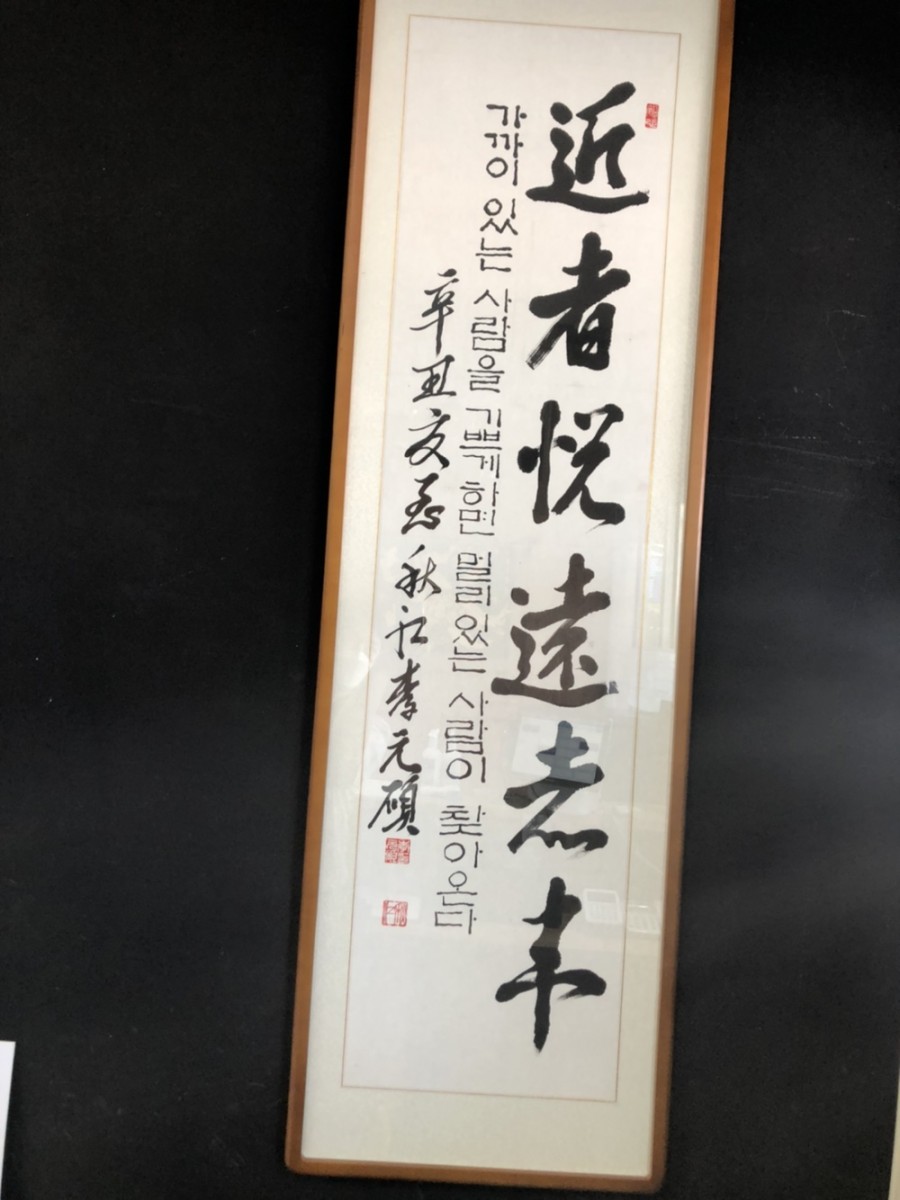 近者悅遠者來
가까이 있는 사람을 기쁘게하면 멀리있는 사람이 찾아온다
辛丑 秋江 李元碩